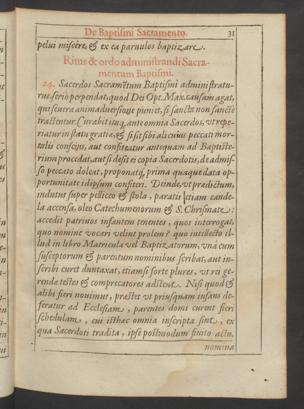 De Baptismi Sacramento. 31
pelvi miscere, & ex ea parvulos baptizare.
Ritus & ordo administrandi Sacra-
mentum Baptismi.
24. Sacerdos Sacramẽtum Baptismi administratu-
rus, seriò perpendat, quod Dei Opt. Max. causam agat,
qui severa animadversione puniet, si sanctū non sanctè
tractetur. Curabit itaq, ante omnia Sacerdos, vt repe-
riatur in statu gratiæ, & si se sibi alicuius peccati mor-
talis conscius, aut confiteatur antequam ad Baptiste-
rium procedat, aut si desit ei copia Sacerdotis, de admis-
so peccato doleat, proponatq, prima quaque data op-
portunitate idipsum confiteri. Deinde, vt prædictum,
indutus super pelliceo & stola, paratis etiam cande-
la accensa, oleo Catechumenorum & S. Chrismate
accedit patrinos infantem tenentes, quos interogat:
quo nomine vocari velint prolem? quo intellecto il-
lud in libro Matricula vel Baptizatorum, vnà cum
susceptorum & parentum nominibus scribat, aut in-
scribi curet duntaxat, etiamsi forte plures, vt rei ge-
rendæ testes & comprecatores adstent. Nisi quod &
alibi fieri novimus, præstet vt priusquam infans de-
feratur ad Ecclesiam, parentes domi curent fieri
schedulam, cui isthæc omnia inscripta sint, ex
qua Sacerdoti tradita, ipse postmodum finito actu,
nomina